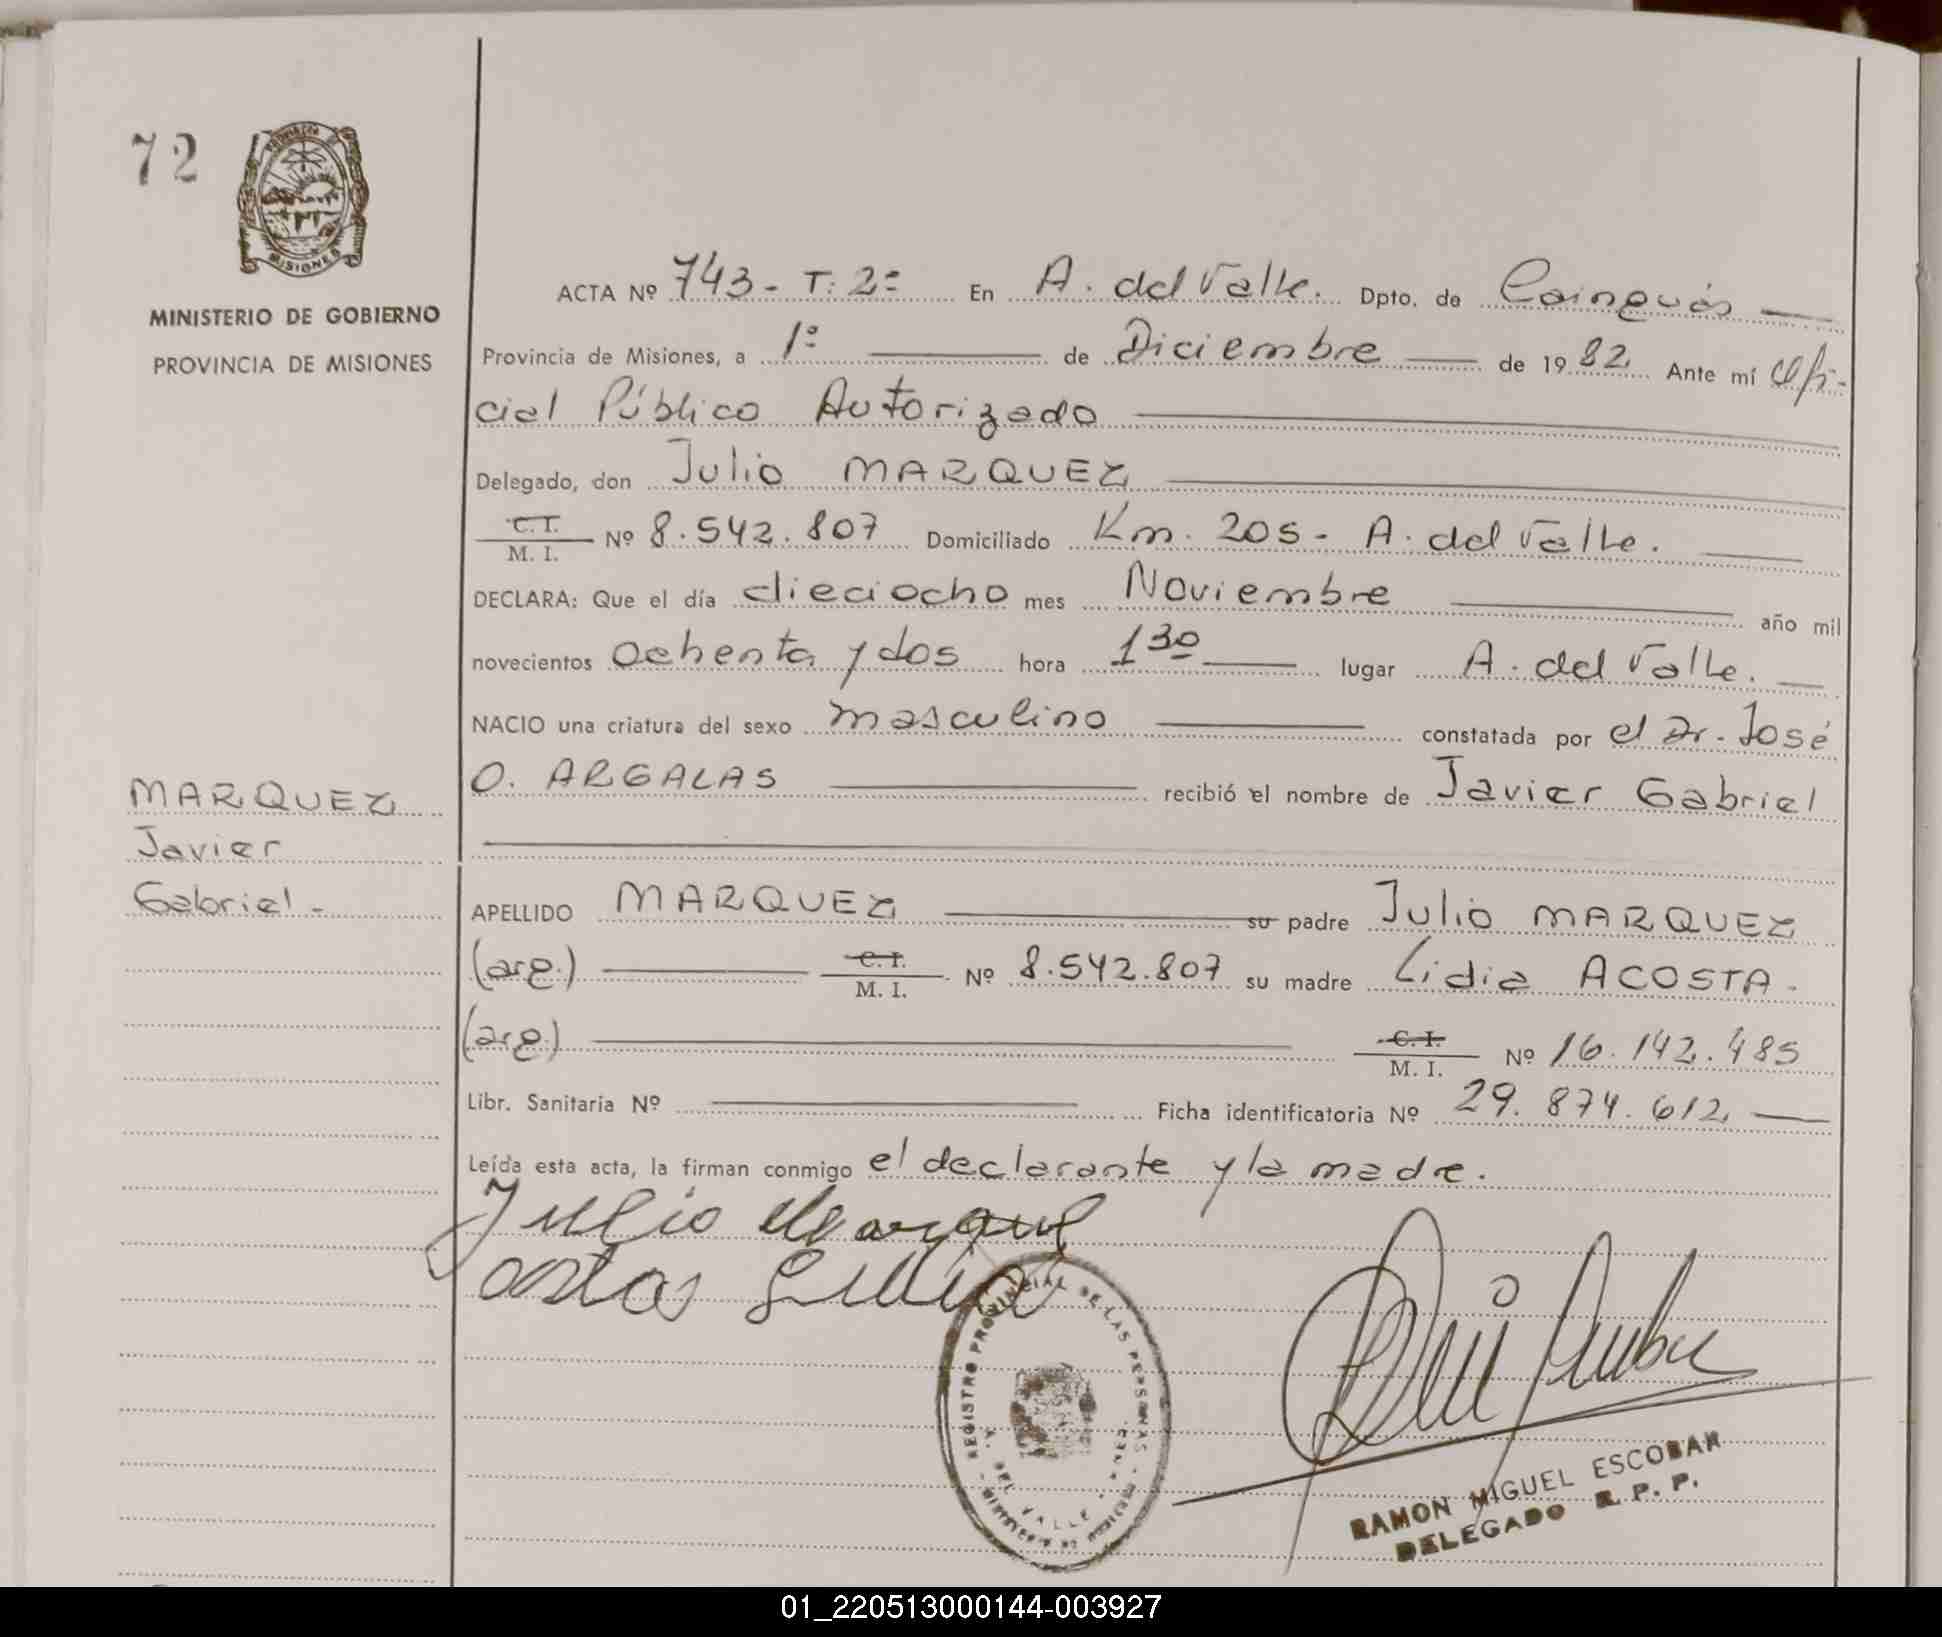 72
PROVINCIA
MISIONES
MINISTERIO DE GOBIERNO
PROVINCIA DE MISIONES
ACTA Nº 743 - T: 2º En A. del Valle. Dpto. de Cainguás
Provincia de Misiones, a 1º de Diciembre de 1982 Ante mí Ofi-
cial Público Autorizado
Delegado, don Julio MARQUEZ
C.I. M. I. Nº 8.542.807 Domiciliado Km. 205 - A. del Valle.
DECLARA: Que el día dieciocho mes Noviembre año mil
novecientos ochenta y dos hora 1 30 lugar A. del Valle.
NACIO una criatura del sexo masculino constatada por el Dr. José
O. ARGALAS recibió el nombre de Javier Gabriel
MARQUEZ
Javier
Gabriel -
APELLIDO MARQUEZ su padre Julio MARQUEZ
(arg.) C.I. M. I. Nº 8.542.807 su madre Lidia ACOSTA -
(arg) C.I. M. I. Nº 16.142.485
Libr. Sanitaria Nº Ficha identificatoria Nº 29.874.612
Leída esta acta, la firman conmigo el declarante y la madre.
Julio Marquez
REGISTRO PROVINCIAL DE LAS PERSONAS
A. DEL VALLE
RAMON MIGUEL ESCOBAR
DELEGADO R. P. P.
01_220513000144-003927